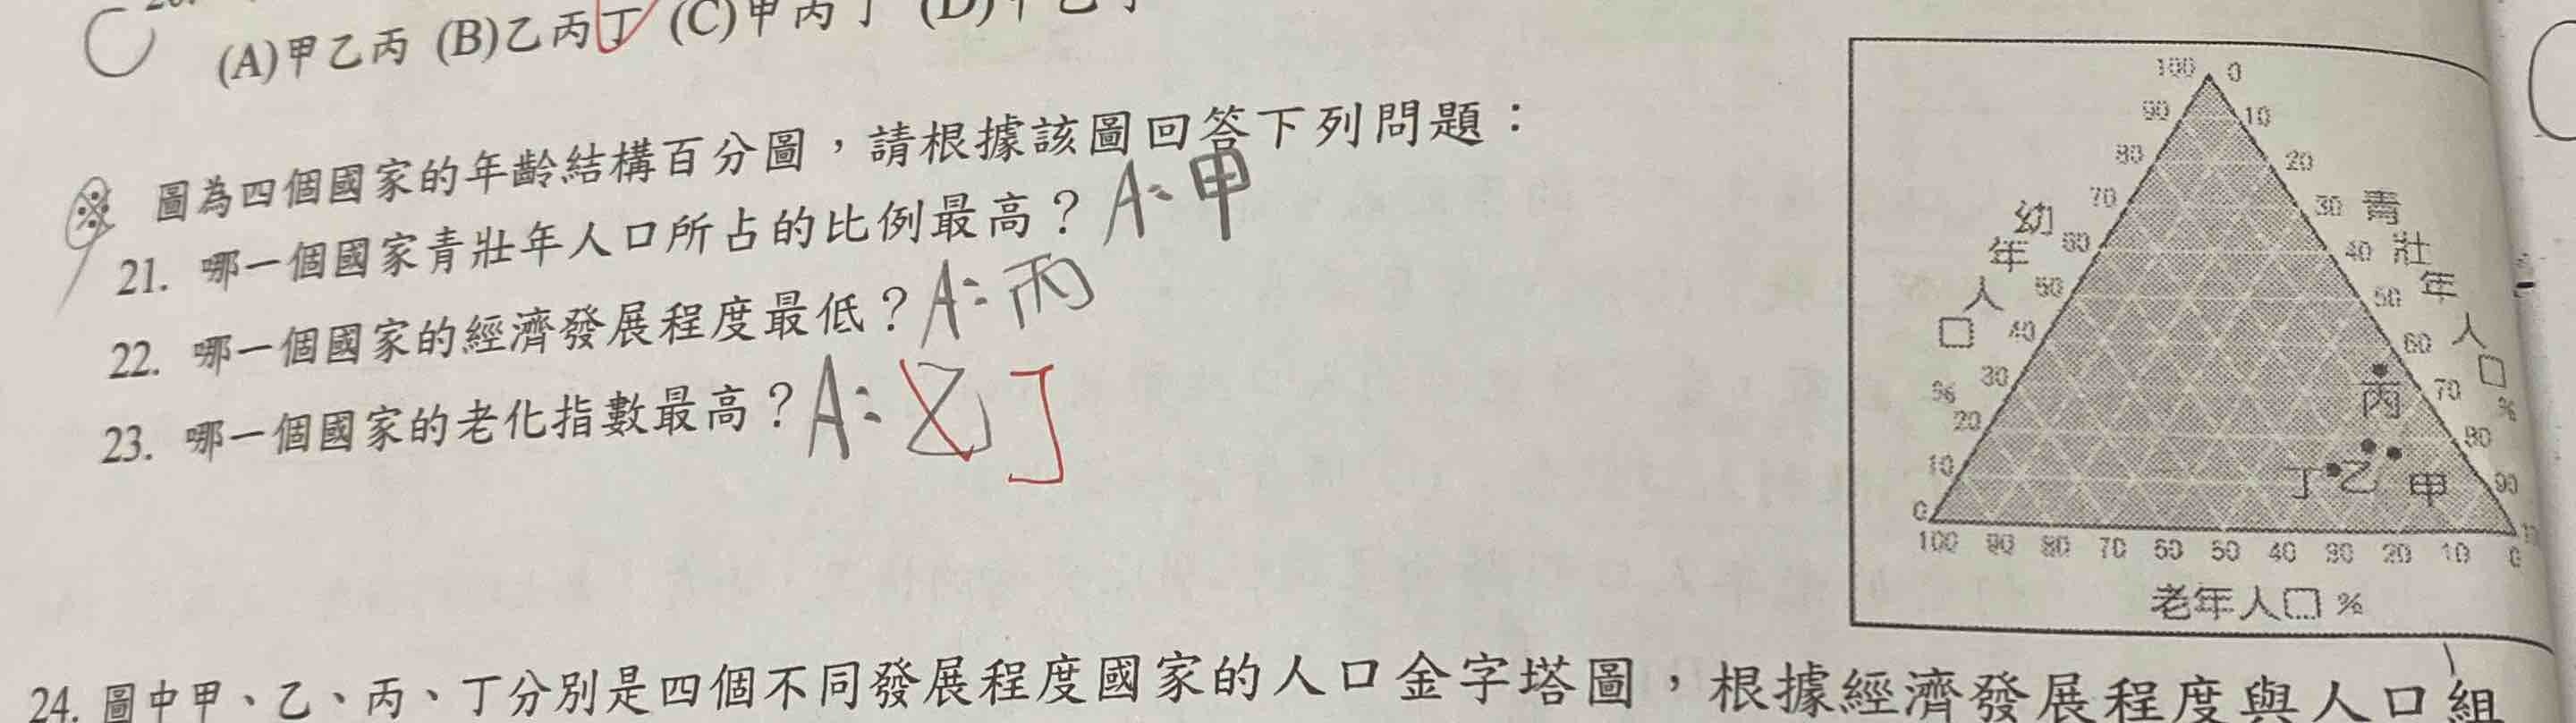 (A)甲乙丙 (B)乙丙丁 (C)甲丙丁 (D)甲乙丁
圖為四個國家的年齡結構百分圖，請根據該圖回答下列問題：
21. 哪一個國家青壯年人口所占的比例最高？A：甲
22. 哪一個國家的經濟發展程度最低？A：丙
23. 哪一個國家的老化指數最高？A：乙 丁
100 0
90 10
80 20
70 30
60 40
50 50
40 60
30 70
20 80
10 90
0
幼年人口 %
青壯年人口 %
丙
丁 乙 甲
100 90 80 70 60 50 40 30 20 10 0
老年人口 %
24. 圖中甲、乙、丙、丁分別是四個不同發展程度國家的人口金字塔圖，根據經濟發展程度與人口組